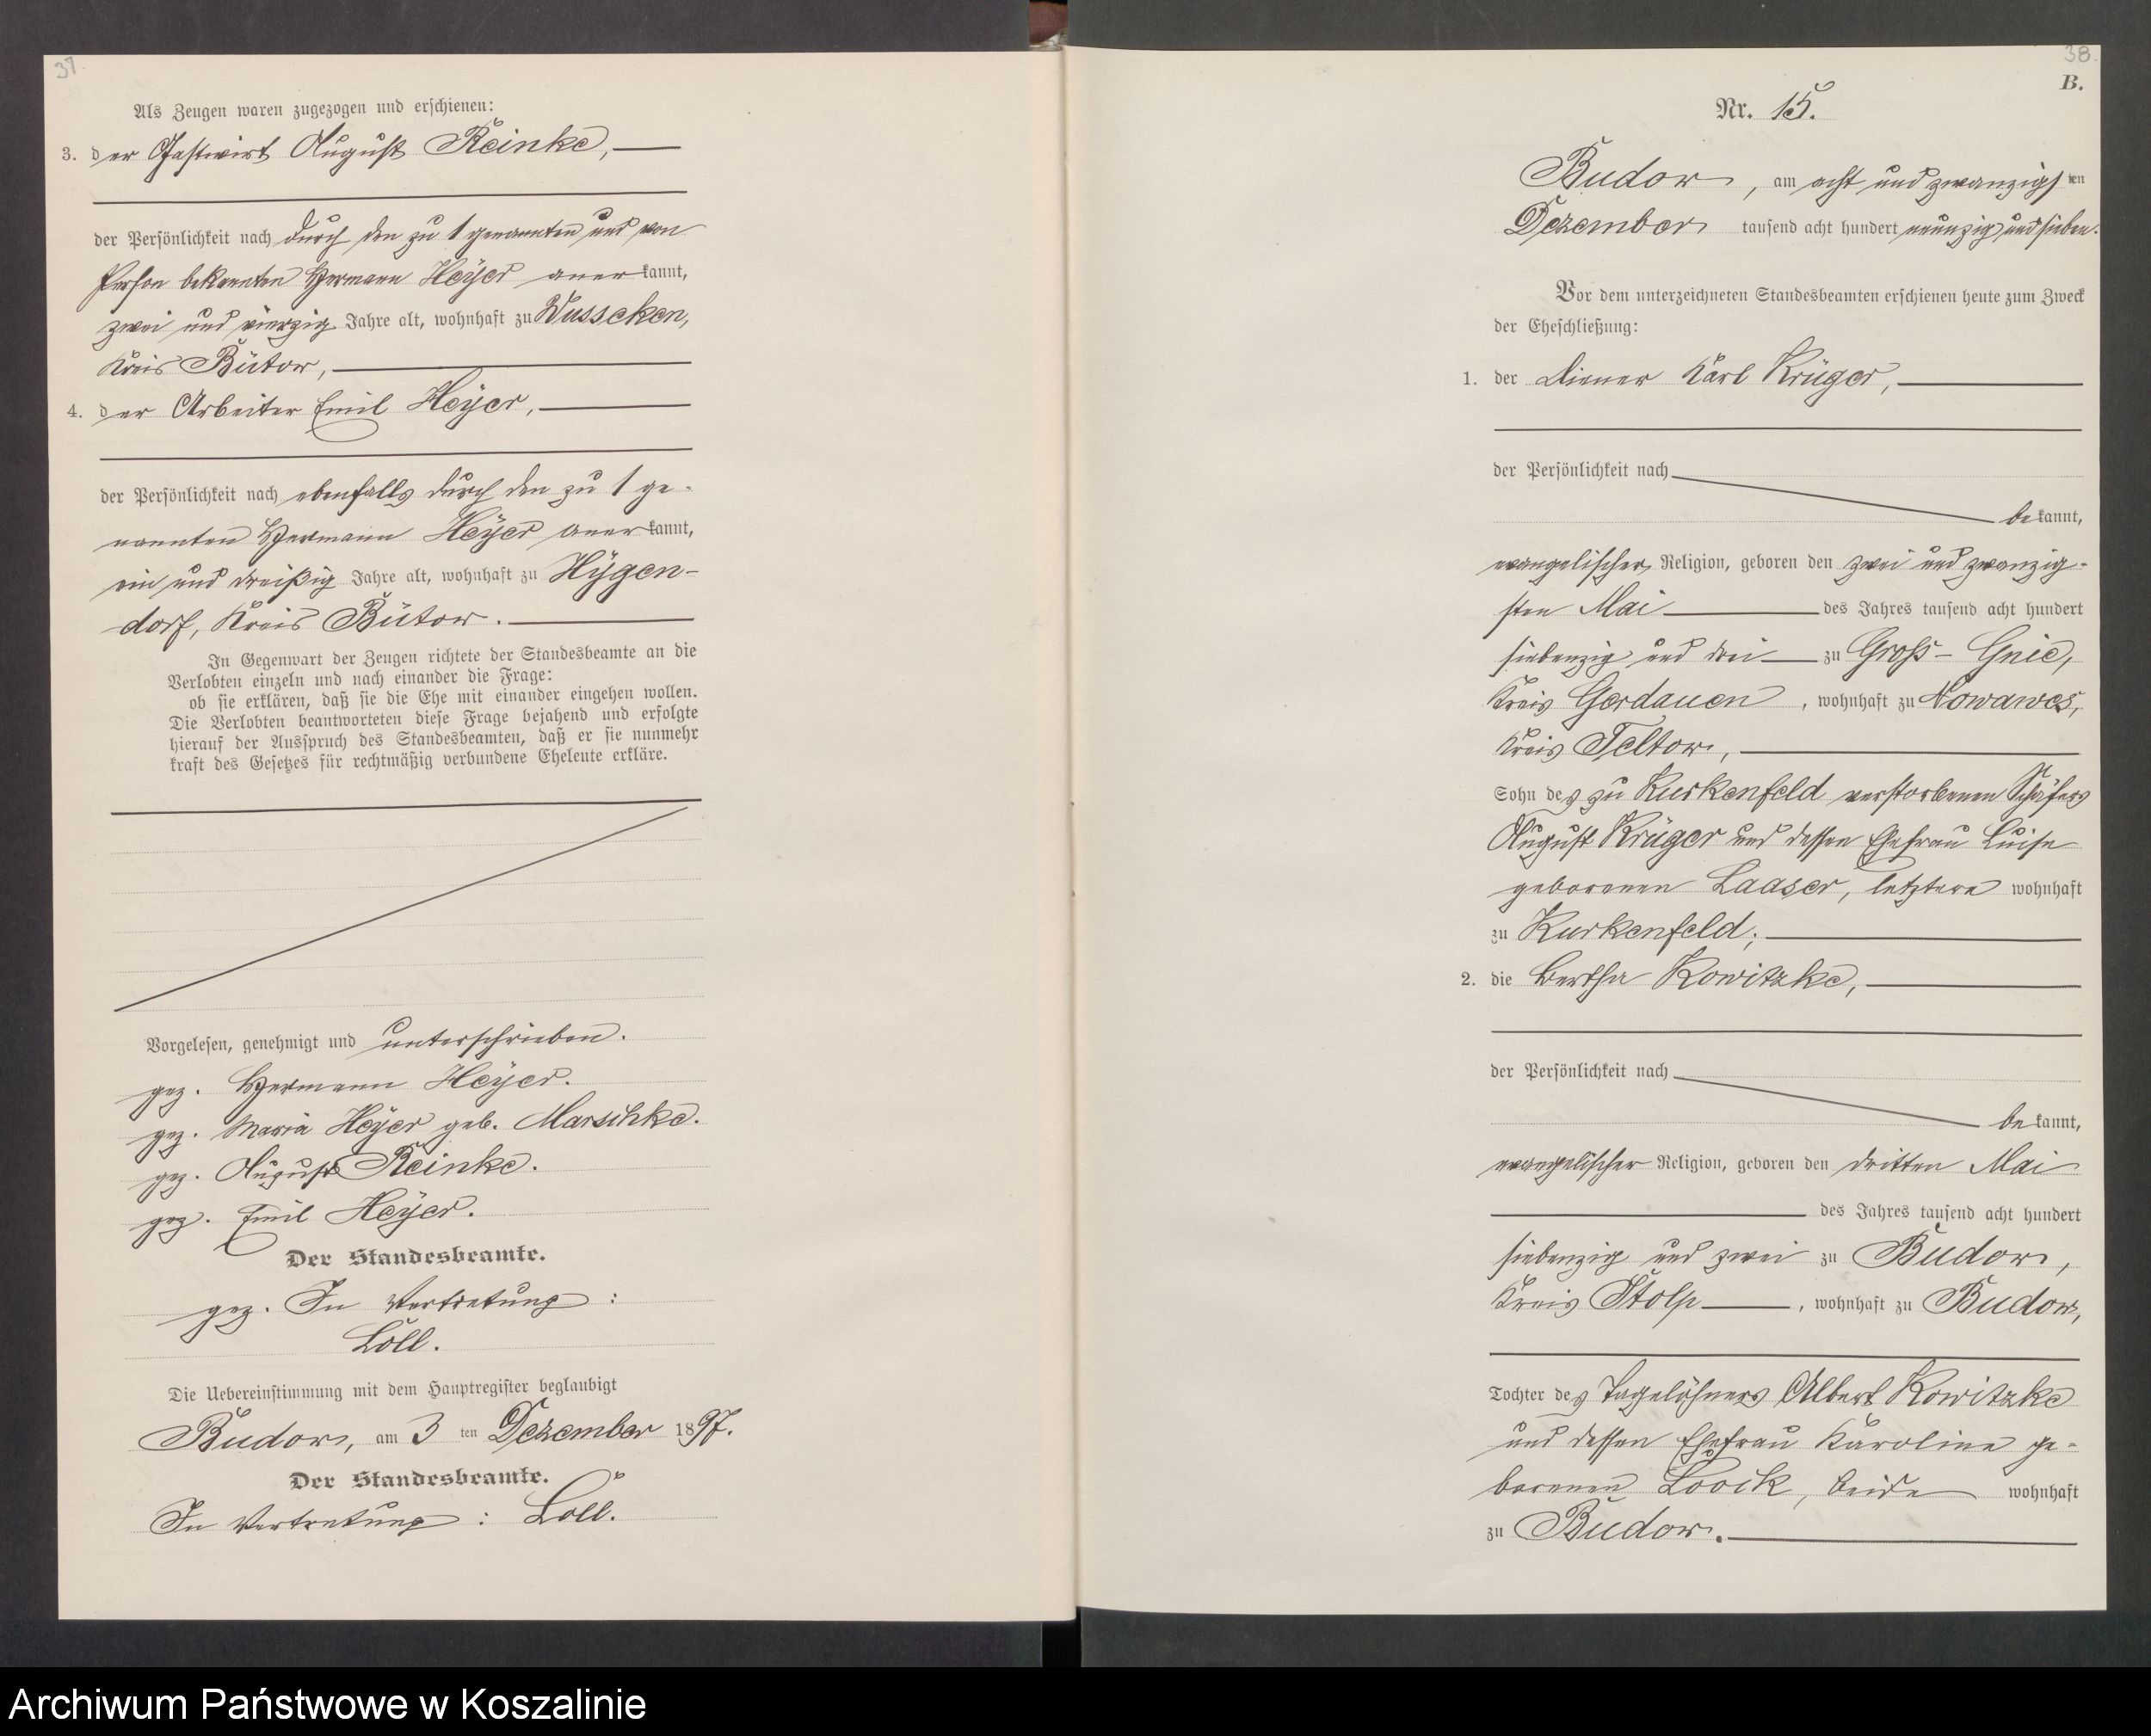 37.
Als Zeugen waren zugezogen und erschienen:
3. der Gastwirt August Reinke,
der Persönlichkeit nach durch den zu 1 genannten und von
Person bekannten Hermann Heyer anerkannt,
zwei und vierzig Jahre alt, wohnhaft zu Wusseken,
Kreis Bütow,
4. der Arbeiter Emil Heyer,
der Persönlichkeit nach ebenfalls durch den zu 1 ge-
nannten Hermann Heyer anerkannt,
ein und dreißig Jahre alt, wohnhaft zu Hygen-
dorf, Kreis Bütow.
In Gegenwart der Zeugen richtete der Standesbeamte an die
Verlobten einzeln und nach einander die Frage:
ob sie erklären, daß sie die Ehe mit einander eingehen wollen.
Die Verlobten beantworteten diese Frage bejahend und erfolgte
hierauf der Ausspruch des Standesbeamten, daß er sie nunmehr
kraft des Gesetzes für rechtmäßig verbundene Eheleute erkläre.
Vorgelesen, genehmigt und unterschrieben.
gez. Hermann Heyer.
gez. Maria Heyer geb. Marschke.
gez. August Reinke.
gez. Emil Heyer.
Der Standesbeamte.
gez. In Vertretung:
Löll.
Die Uebereinstimmung mit dem Hauptregister beglaubigt
Budow, am 3 ten Dezember 1897.
Der Standesbeamte.
In Vertretung: Löll.
38.
B.
Nr. 15.
Budow, am acht und zwanzigsten
Dezember tausend acht hundert neunzig und sieben.
Vor dem unterzeichneten Standesbeamten erschienen heute zum Zweck
der Eheschließung:
1. der Diener Karl Krüger,
der Persönlichkeit nach
bekannt,
evangelischer Religion, geboren den zwei und zwanzig-
sten Mai des Jahres tausend acht hundert
siebenzig und drei zu Groß-Gnie,
Kreis Gerdauen, wohnhaft zu Nowawes,
Kreis Teltow,
Sohn des zu Kurkenfeld verstorbenen Schäfers
August Krüger und dessen Ehefrau Luise
geborenen Laaser, letztere wohnhaft
zu Kurkenfeld;
2. die Bertha Kowitzke,
der Persönlichkeit nach
bekannt,
evangelischer Religion, geboren den dritten Mai
des Jahres tausend acht hundert
siebenzig und zwei zu Budow,
Kreis Stolp, wohnhaft zu Budow,
Tochter des Tagelöhners Albert Kowitzke
und dessen Ehefrau Karoline ge-
borenen Loock, beide wohnhaft
zu Budow.
Archiwum Państwowe w Koszalinie